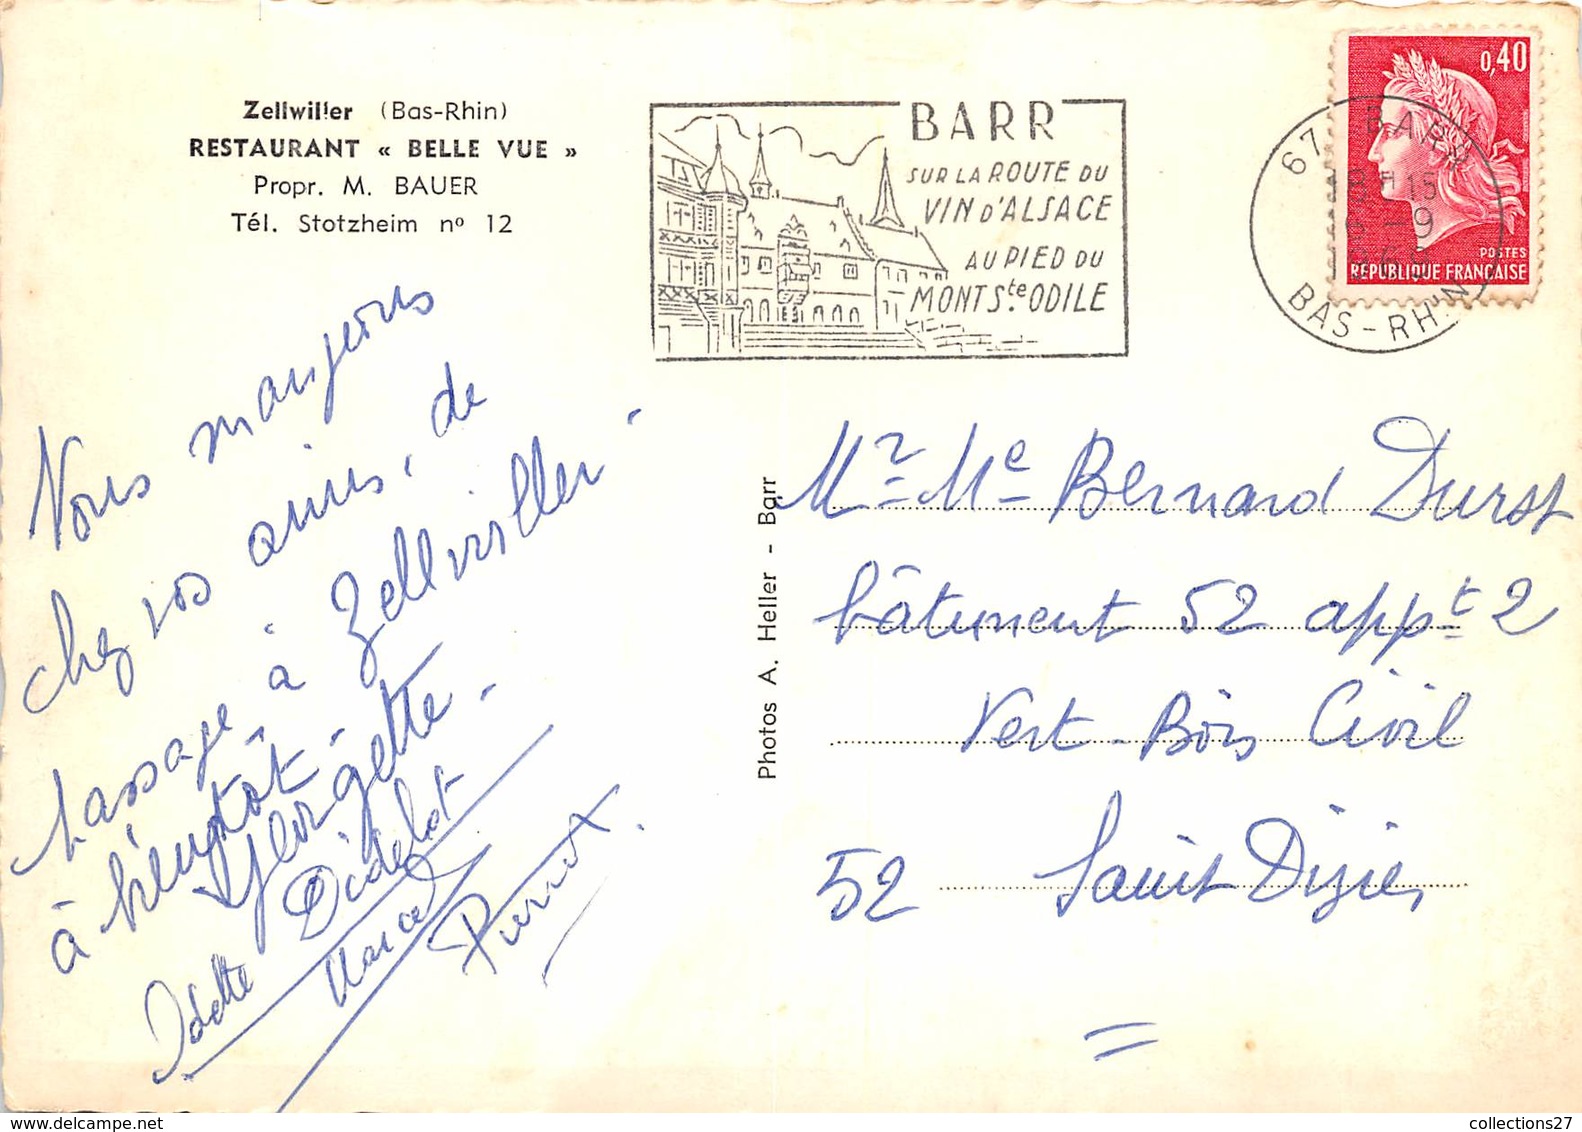 Zellwiller (Bas-Rhin)
RESTAURANT « BELLE VUE »
Propr. M. BAUER
Tél. Stotzheim nº 12
BARR
SUR LA ROUTE DU
VIN D'ALSACE
AU PIED DU
MONT Ste. ODILE
67 BARR
BAS-RHIN
0,40
POSTES
RÉPUBLIQUE FRANÇAISE
Nous mangeons
chez vos amis, de
passage à Zellwiller -
à bientôt -
Georgette -
Odette Didelot
Marcel
Pierret
Photos A. Heller - Barr
Mr Me Bernard Durst
bâtiment 52 appt 2
Vert-Bois Civil
52 Saint Dizier
collections27